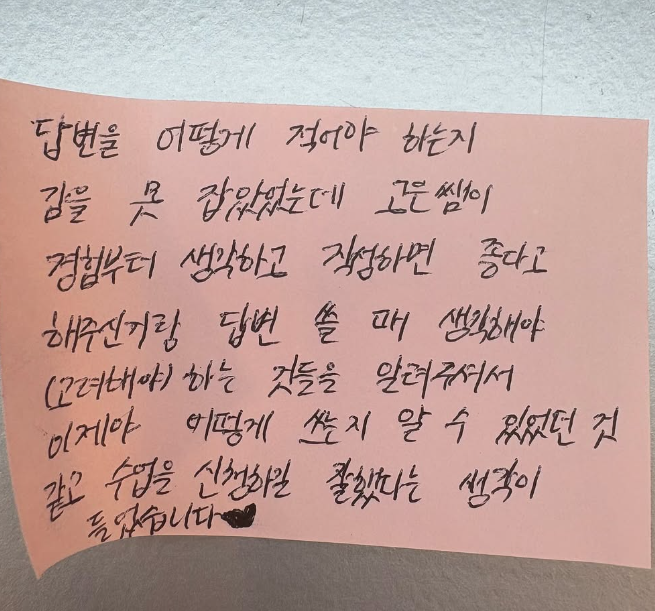 답변을 어떻게 적어야 하는지
감을 못 잡았었는데 고은쌤이
경험부터 생각하고 작성하면 좋다고
해주신거랑 답변 쓸 때 생각해야
(고려해야) 하는 것들을 알려주셔서
이제야 어떻게 쓰는지 알 수 있었던 것
같고 수업을 신청하길 잘했다는 생각이
들었습니다♥